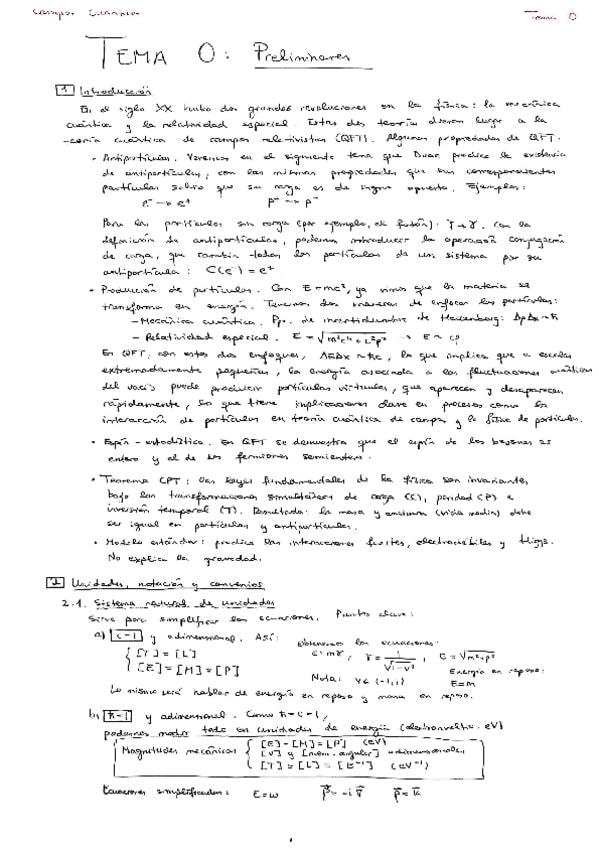 Campos Cuánticos Tema 0
TEMA 0: Preliminares
1 Introducción
En el siglo XX hubo dos grandes revoluciones en la física: la mecánica
cuántica y la relatividad especial. Estas dos teorías dieron lugar a la
teoría cuántica de campos relativistas (QFT). Algunas propiedades de QFT.
• Antipartículas. Veremos en el siguiente tema que Dirac predice la existencia
de antipartículas, con las mismas propiedades que sus correspondientes
partículas salvo que su carga es de signo opuesto. Ejemplos:
e⁻ → e⁺ p⁺ → p⁻
Para las partículas sin carga (por ejemplo, el fotón): γ → γ. Con la
definición de antipartículas, podemos introducir la operación conjugación
de carga, que cambia todas las partículas de un sistema por su
antipartícula: C(e⁻) = e⁺
• Producción de partículas. Con E=mc², ya vimos que la materia se
transforma en energía. Tenemos dos maneras de enfocar las partículas:
– Mecánica cuántica. Pp. de incertidumbre de Heisenberg: ΔpΔx ~ ħ
– Relatividad especial. E = √m²c⁴ + c²p² → E ~ cp
En QFT, con estos dos enfoques, ΔEΔx ~ ħc, lo que implica que a escalas
extremadamente pequeñas, la energía asociada a las fluctuaciones cuánticas
del vacío puede producir partículas virtuales, que aparecen y desaparecen
rápidamente, lo que tiene implicaciones clave en procesos como la
interacción de partículas en teoría cuántica de campos y la física de partículas.
• Espín - estadística. En QFT se demuestra que el espín de los bosones es
entero y el de los fermiones semientero.
• Teorema CPT: las leyes fundamentales de la física son invariantes
bajo las transformaciones simultáneas de carga (C), paridad (P) e
inversión temporal (T). Resultado: la masa y anchura (vida media) debe
ser igual en partículas y antipartículas.
• Modelo estándar: predice las interacciones fuertes, electrodébiles y Higgs.
No explica la gravedad.
2 Unidades, notación y convenios
2.1. Sistema natural de unidades
Sirve para simplificar las ecuaciones. Puntos clave:
a) c=1 y adimensional. Así: obtenemos las ecuaciones:
{ [T] = [L] E=mγ, γ = 1/√1-v², E = √m²+p²
[E] = [M] = [P] Nota: v∈(-1,1) Energía en reposo: E=m
Lo mismo será hablar de energía en reposo y masa en reposo.
b) ħ=1 y adimensional. Como ħ=c=1,
podemos medir todo en unidades de energía (electronvoltio, eV)
Magnitudes mecánicas { [E] = [M] = [P] (eV)
[v] y [mom. angular] adimensionales
[T] = [L] = [E⁻¹] (eV⁻¹)
Ecuaciones simplificadas: E=ω p⃗ = -i∇⃗ p⃗ = k⃗